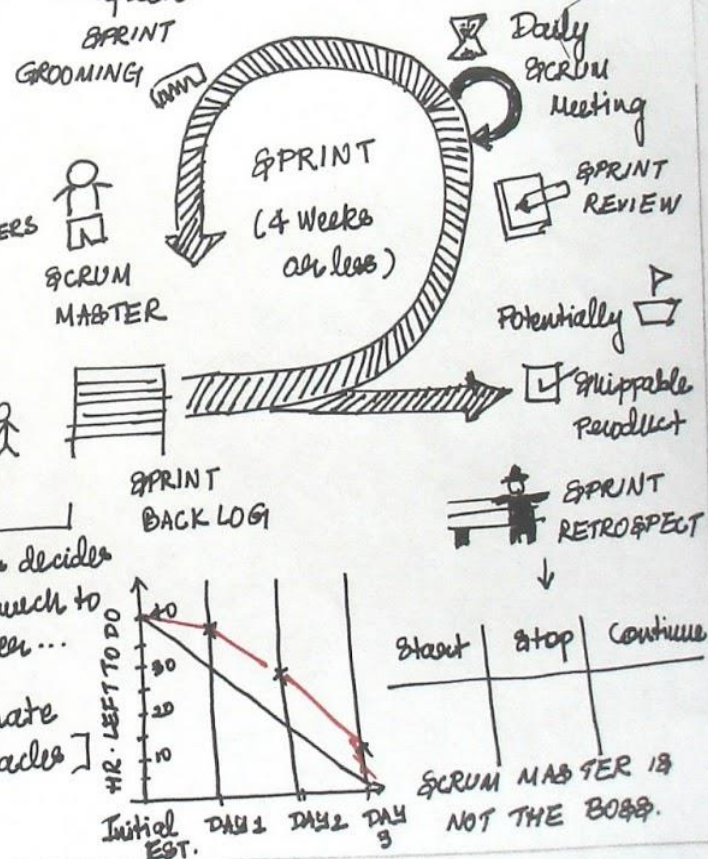 SPRINT
GROOMING
Daily
SCRUM
Meeting
SPRINT
(4 weeks
or less)
SPRINT
REVIEW
ERS
SCRUM
MASTER
Potentially
Shippable
product
SPRINT
BACK LOG
SPRINT
RETROSPECT
decides
much to
Start
Stop
Continue
HR. LEFT TO DO
40
30
20
10
Initial
EST.
DAY 1
DAY 2
DAY
3
SCRUM MASTER IS
NOT THE BOSS.